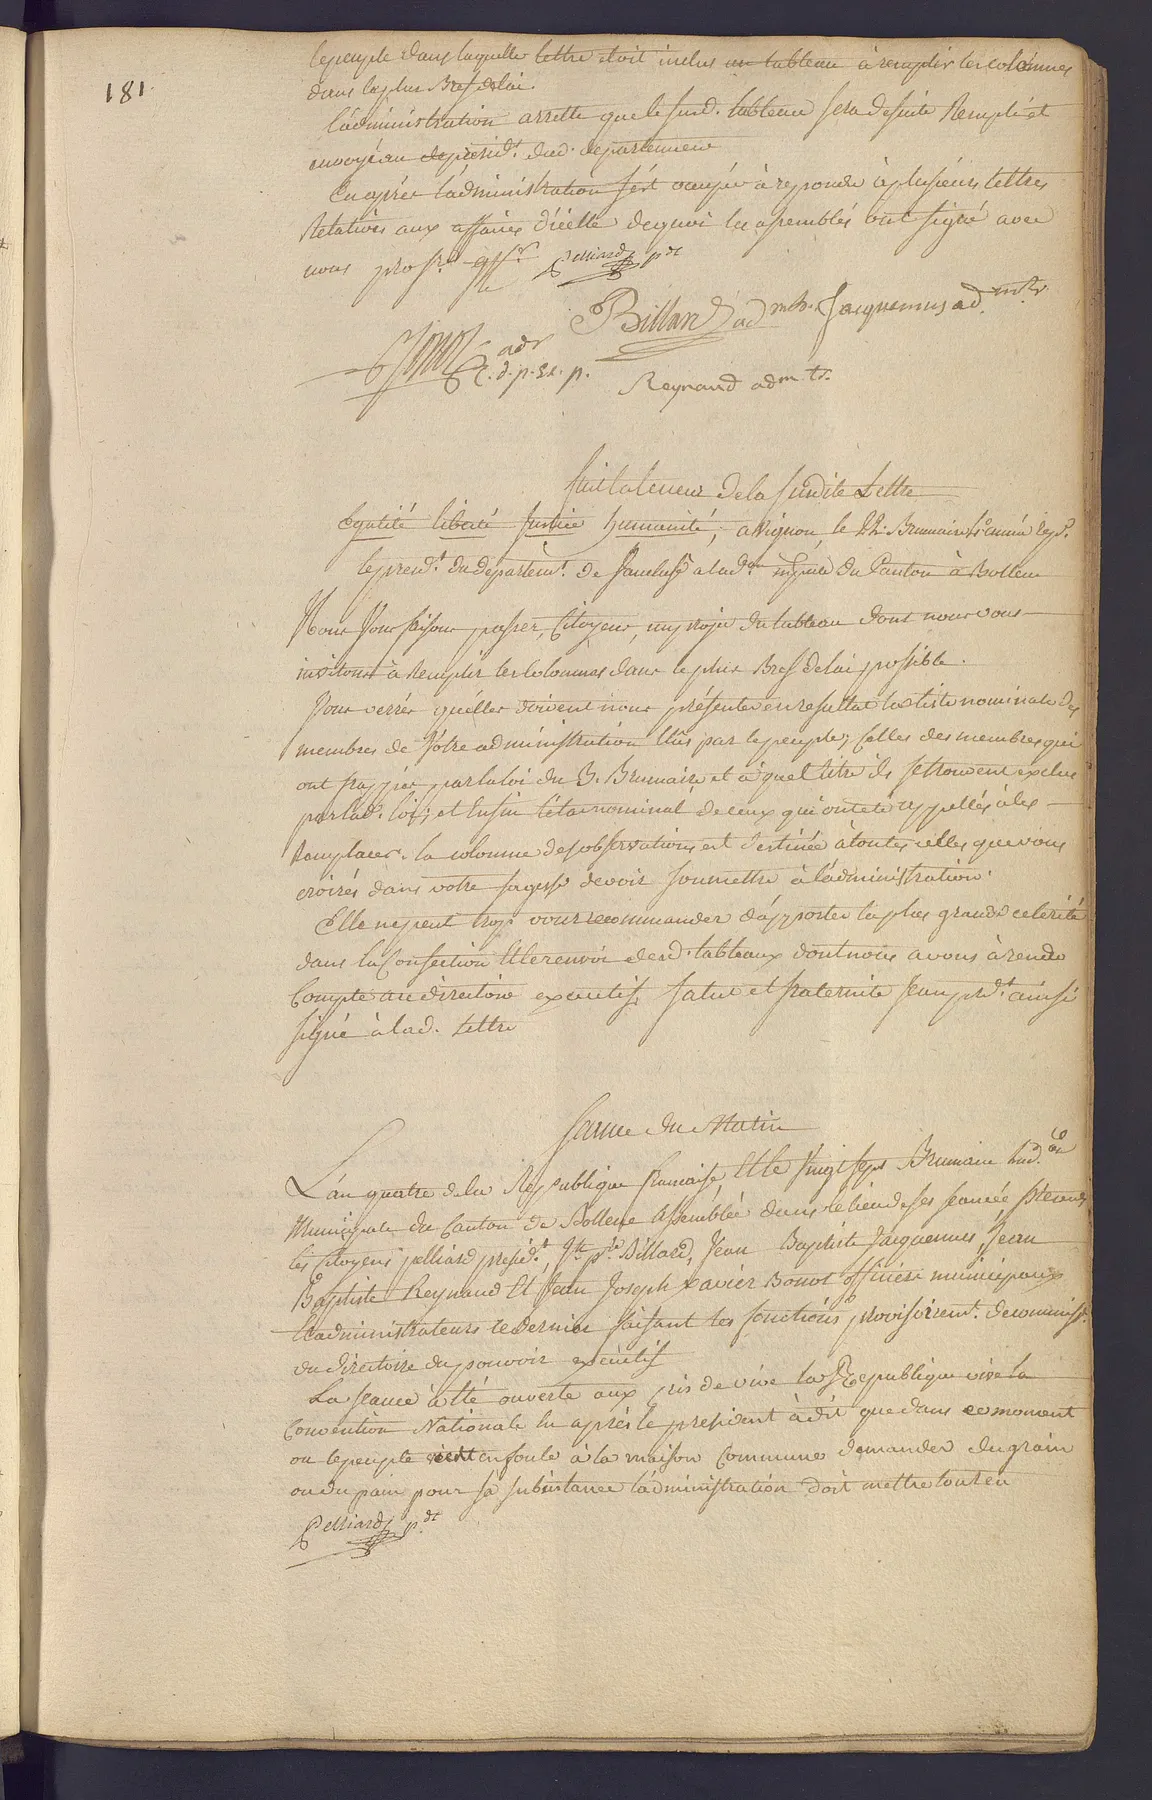 181
le peuple dans laquelle lettre etoit inclus un tableau à remplir les colonnes
dans le plus Bref delai.
l'administration arrette que le susd. tableau sera de suite Remplé et
envoyé au depresid.t dud. departement
En après l'administration s'est occupée à repondre à plusieurs lettres
Relatives aux affaires d'icelle de quoi les assemblés ont signé avec
nous pro sre. gffr.
Pelliard pdt
Billard ad mtr. Jacquemus ad. mtr
Bonot adr
C. d. p. ex. p.
Reynaud ad mtr.
suit la teneur de la susdite Lettre
Egalité liberté Justice humanité, avignon, le 22. Brumaire 4e année rep.
le presid.t du departem.t de Vaucluse a l'ad.on mpale du Canton de Bollene
Nous Vous faisons passer, Citoyens, un projet du tableau dont nous vous
invitons à Remplir les colonnes dans le plus Bref delai possible.
Vous verrés qu'elles doivent nous présenter en resultat la liste nominale des
membres de Votre administration Elûs par le peuple; Celles des membres qui
ont frappés par la loi du 3. Brumaire et à quel titre ils se trouvent exclus
par lad. loi; et Enfin l'état nominal de ceux qui ont eté appellés à les
Remplacer. la colonne des observations est destinée à toutes celles que vous
croirés dans votre sagesse devoir soumettre à l'administration.
Elle ne peut trop vous recommander d'apporter la plus grande celerité
dans la Confection Et le renvoi desd. tableaux dont nous avons à rendre
Compte au directoire executif, salut et fraternité Jean pdt. ainsi
signé à lad. Lettre
Seance du Matin
L'an quatre de la Republique francaise, Et le Vingt sept Brumaire l'ad.on
Municipale du Canton de Bollene Assemblée dans le lieu de ses seances presens
les Citoyens pelliard presid.t, Jh. pre Billard, Jean Baptiste Jacquemus, Jean
Baptiste Reynaud Et Jean Joseph xavier Bonot officiers municipaux
Et administrateurs ce dernier faisant les fonctions provisoirem.t de commiss.
du directoire du pouvoir executif
La seance à eté ouverte aux cris de vive la Republique vive la
Convention Nationale En après le president à dit que dans ce moment
ou le peuple vient en foule à la maison Commune demander du grain
ou du pain pour sa subsistance l'administration doit mettre tout en
Pelliard pdt